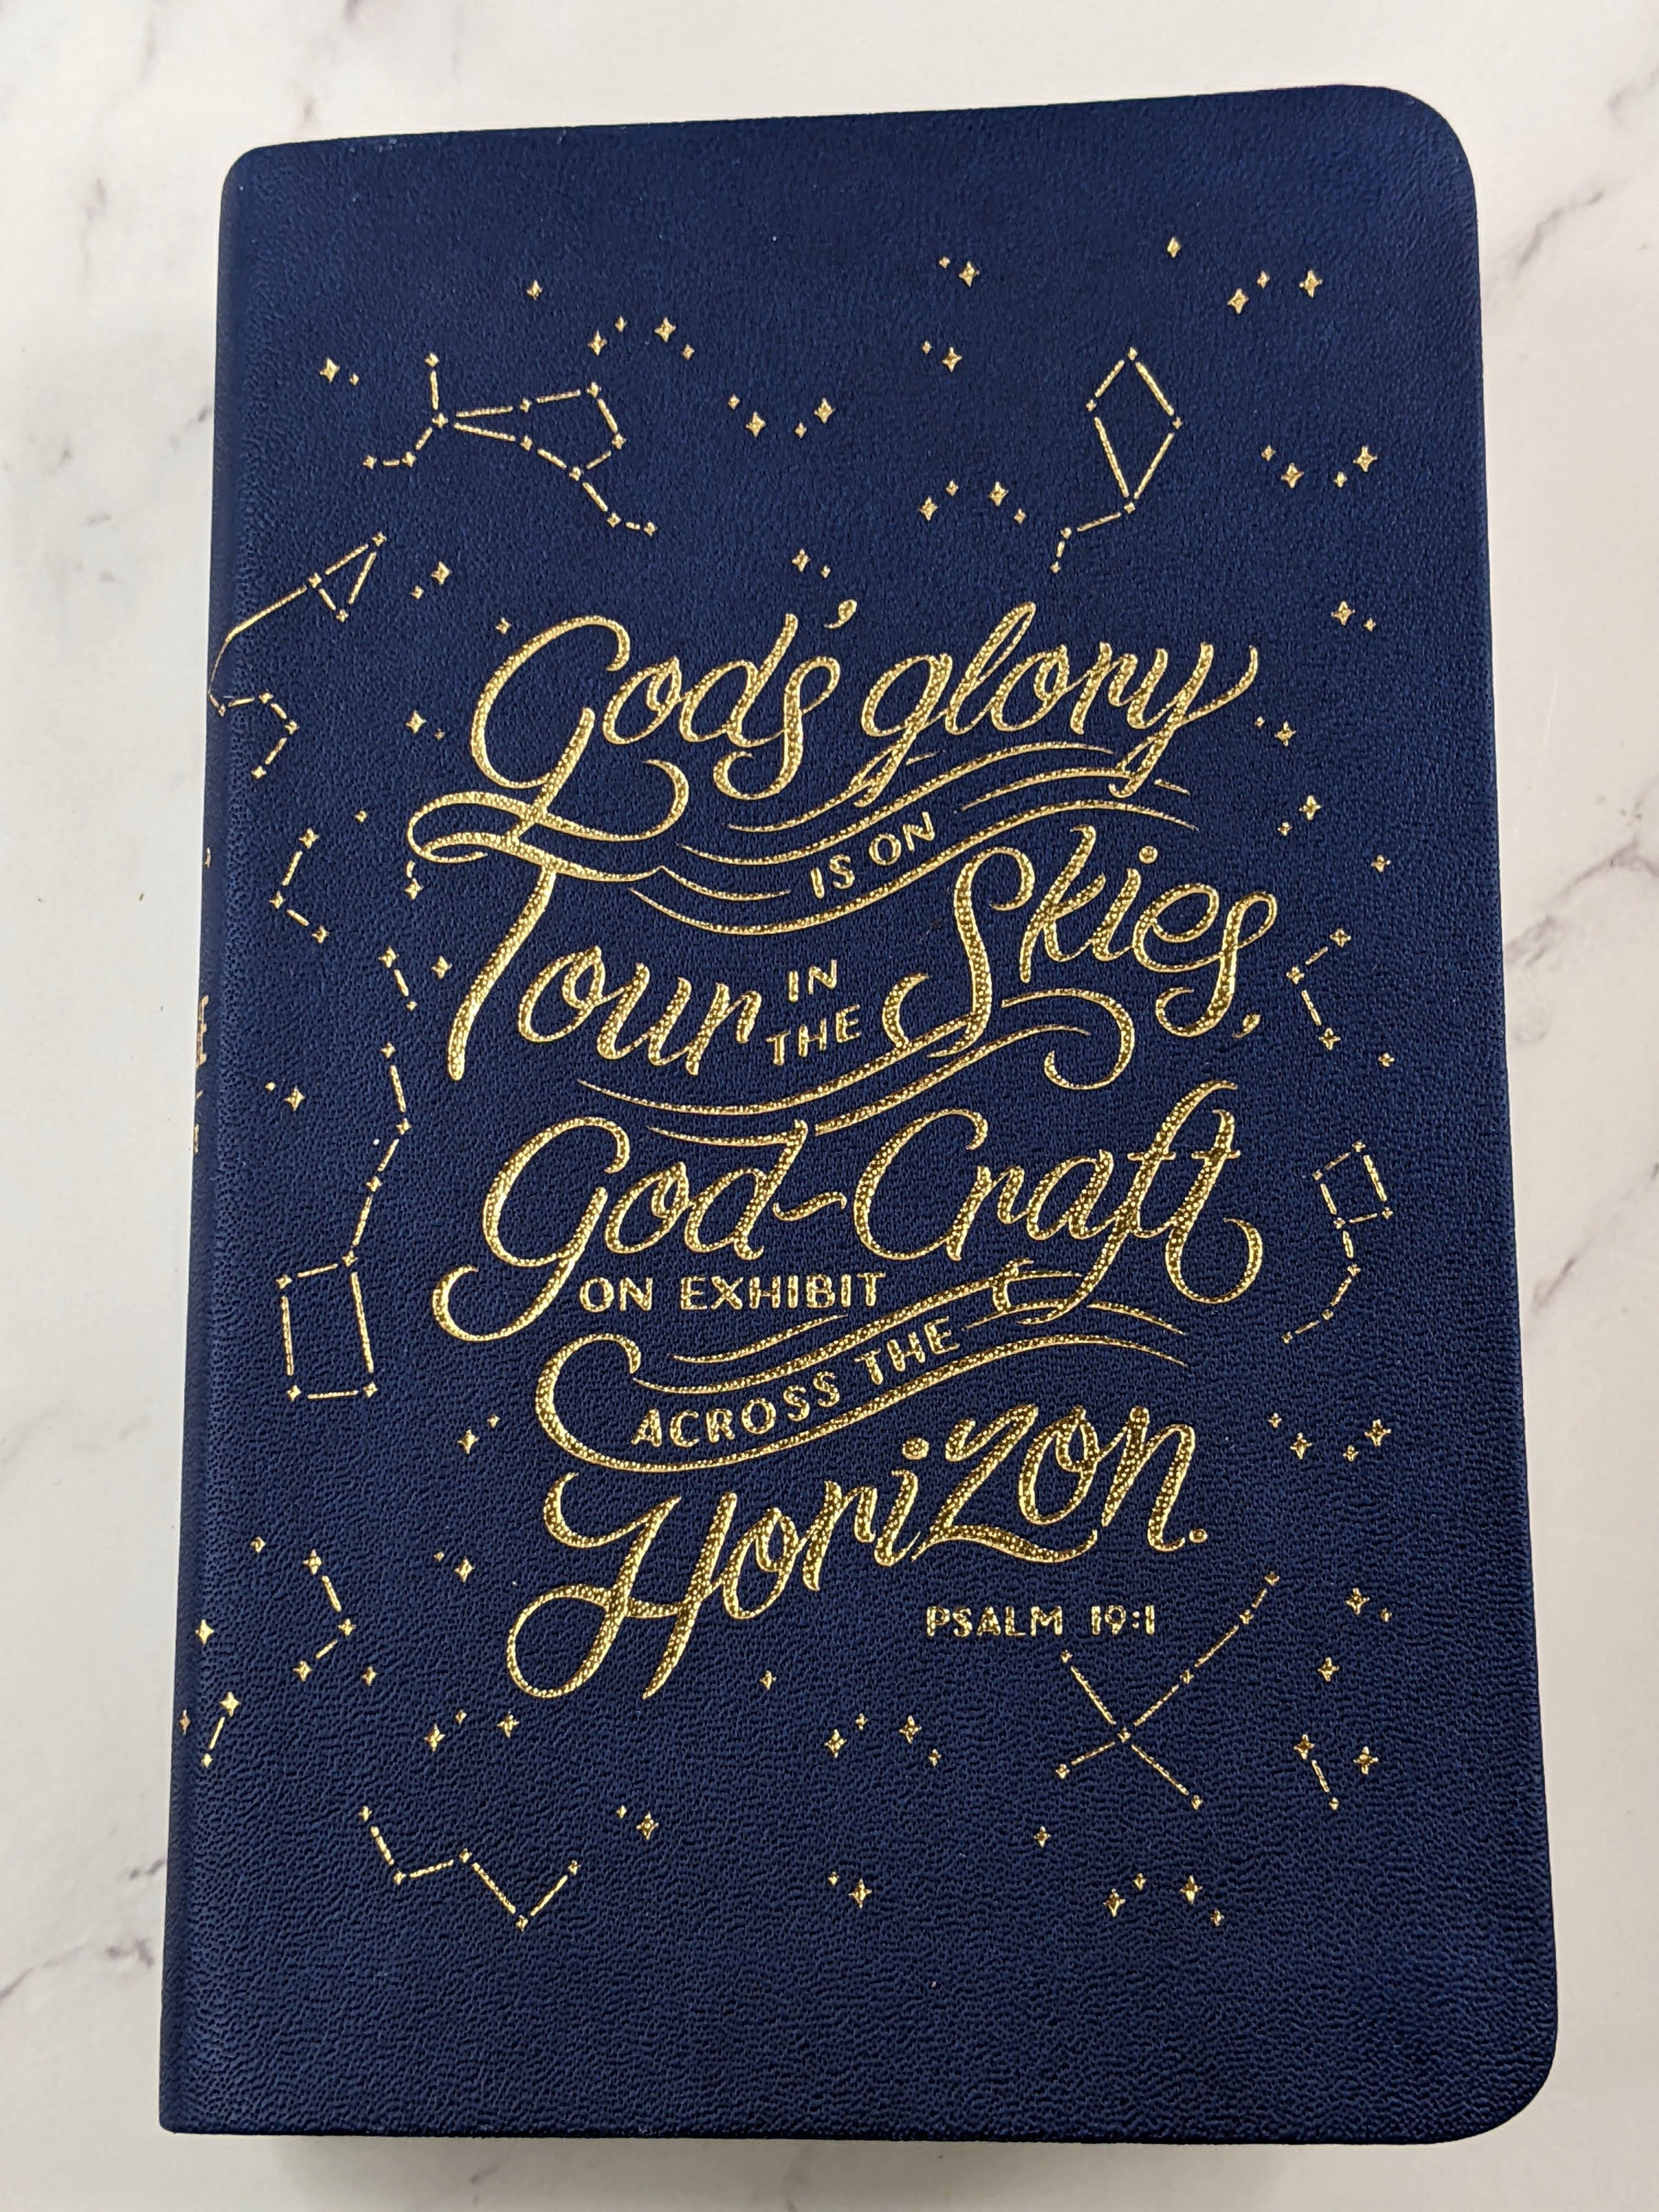 God's glory
IS ON
Tour IN THE Skies,
God-Craft
ON EXHIBIT
ACROSS THE
Horizon.
PSALM 19:1